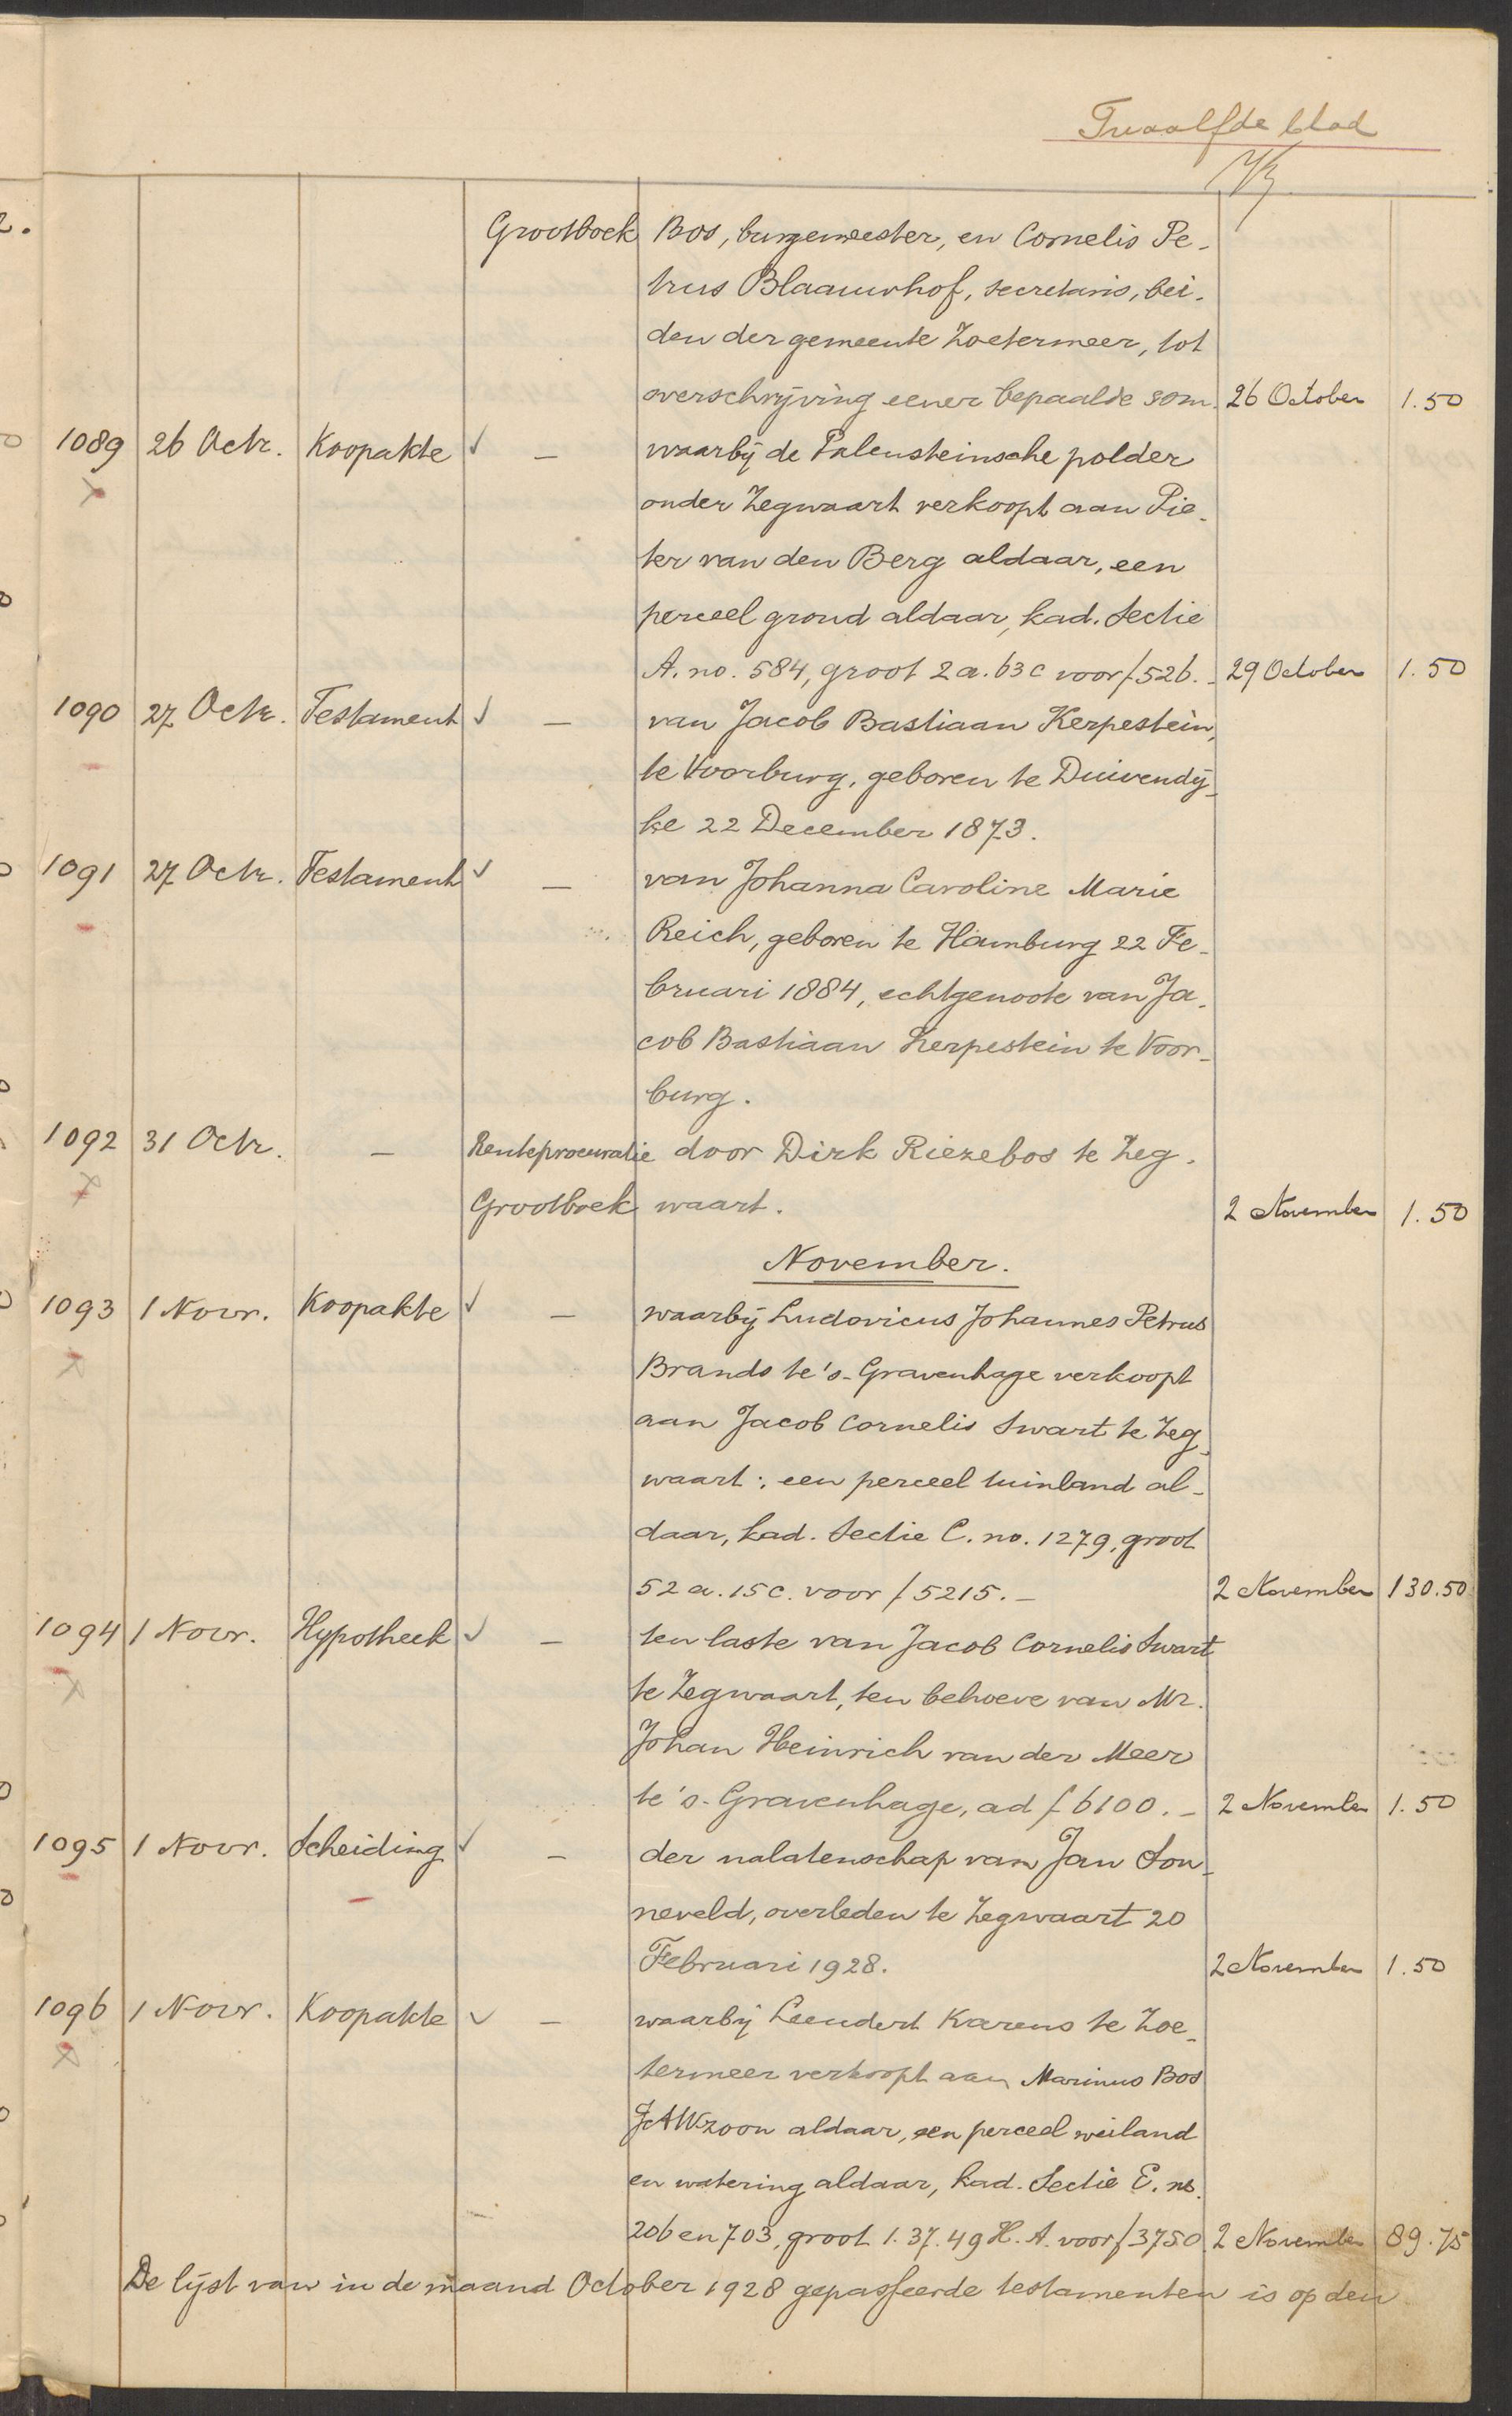 Twaalfde blad
Grootboek Bos, burgemeester, en Cornelis Pe-
trus Blaauwhof, secretaris, bei-
den der gemeente Zoetermeer, tot
overschrijving eener bepaalde som. 26 October 1.50
1089 26 Octr. Koopakte ✓ — waarbij de Palensteinsche polder
onder Zegwaart verkoopt aan Pie-
ter van den Berg aldaar, een
perceel grond aldaar, kad. Sectie
A. no. 584, groot 2 a. 63 c voor f 526.- 29 October 1.50
1090 27 Octr. Testament ✓ — van Jacob Bastiaan Kerpestein,
te Voorburg, geboren te Duivendij-
ke 22 December 1873.
1091 27 Octr. Testament ✓ — van Johanna Caroline Marie
Reich, geboren te Hamburg 22 Fe-
bruari 1884, echtgenoote van Ja-
cob Bastiaan Kerpestein te Voor-
burg.
1092 31 Octr. — Renteprocuratie door Dirk Riezebos te Zeg-
Grootboek waart. 2 November 1.50
November.
1093 1 Novr. Koopakte ✓ — waarbij Ludovicus Johannes Petrus
Brands te 's-Gravenhage verkoopt
aan Jacob Cornelis Swart te Zeg-
waart: een perceel tuinland al-
daar, kad. Sectie C. no. 1279, groot
52 a. 15 c. voor f 5215.- 2 November 130.50
1094 1 Novr. Hypotheek ✓ — ten laste van Jacob Cornelis Swart
te Zegwaart, ten behoeve van Mr.
Johan Heinrich van der Meer
te 's-Gravenhage, ad f 6100.- 2 November 1.50
1095 1 Novr. Scheiding ✓ — der nalatenschap van Jan Son-
neveld, overleden te Zegwaart 20
Februari 1928. 2 November 1.50
1096 1 Novr. Koopakte ✓ — waarbij Leendert Karens te Zoe-
termeer verkoopt aan Marinus Bos
JAWzoon aldaar, een perceel weiland
en watering aldaar, kad. Sectie E. no.
206 en 703, groot 1.37.49 H.A. voor f 3750. 2 November 89.75
De lijst van in de maand October 1928 gepasseerde testamenten is op den